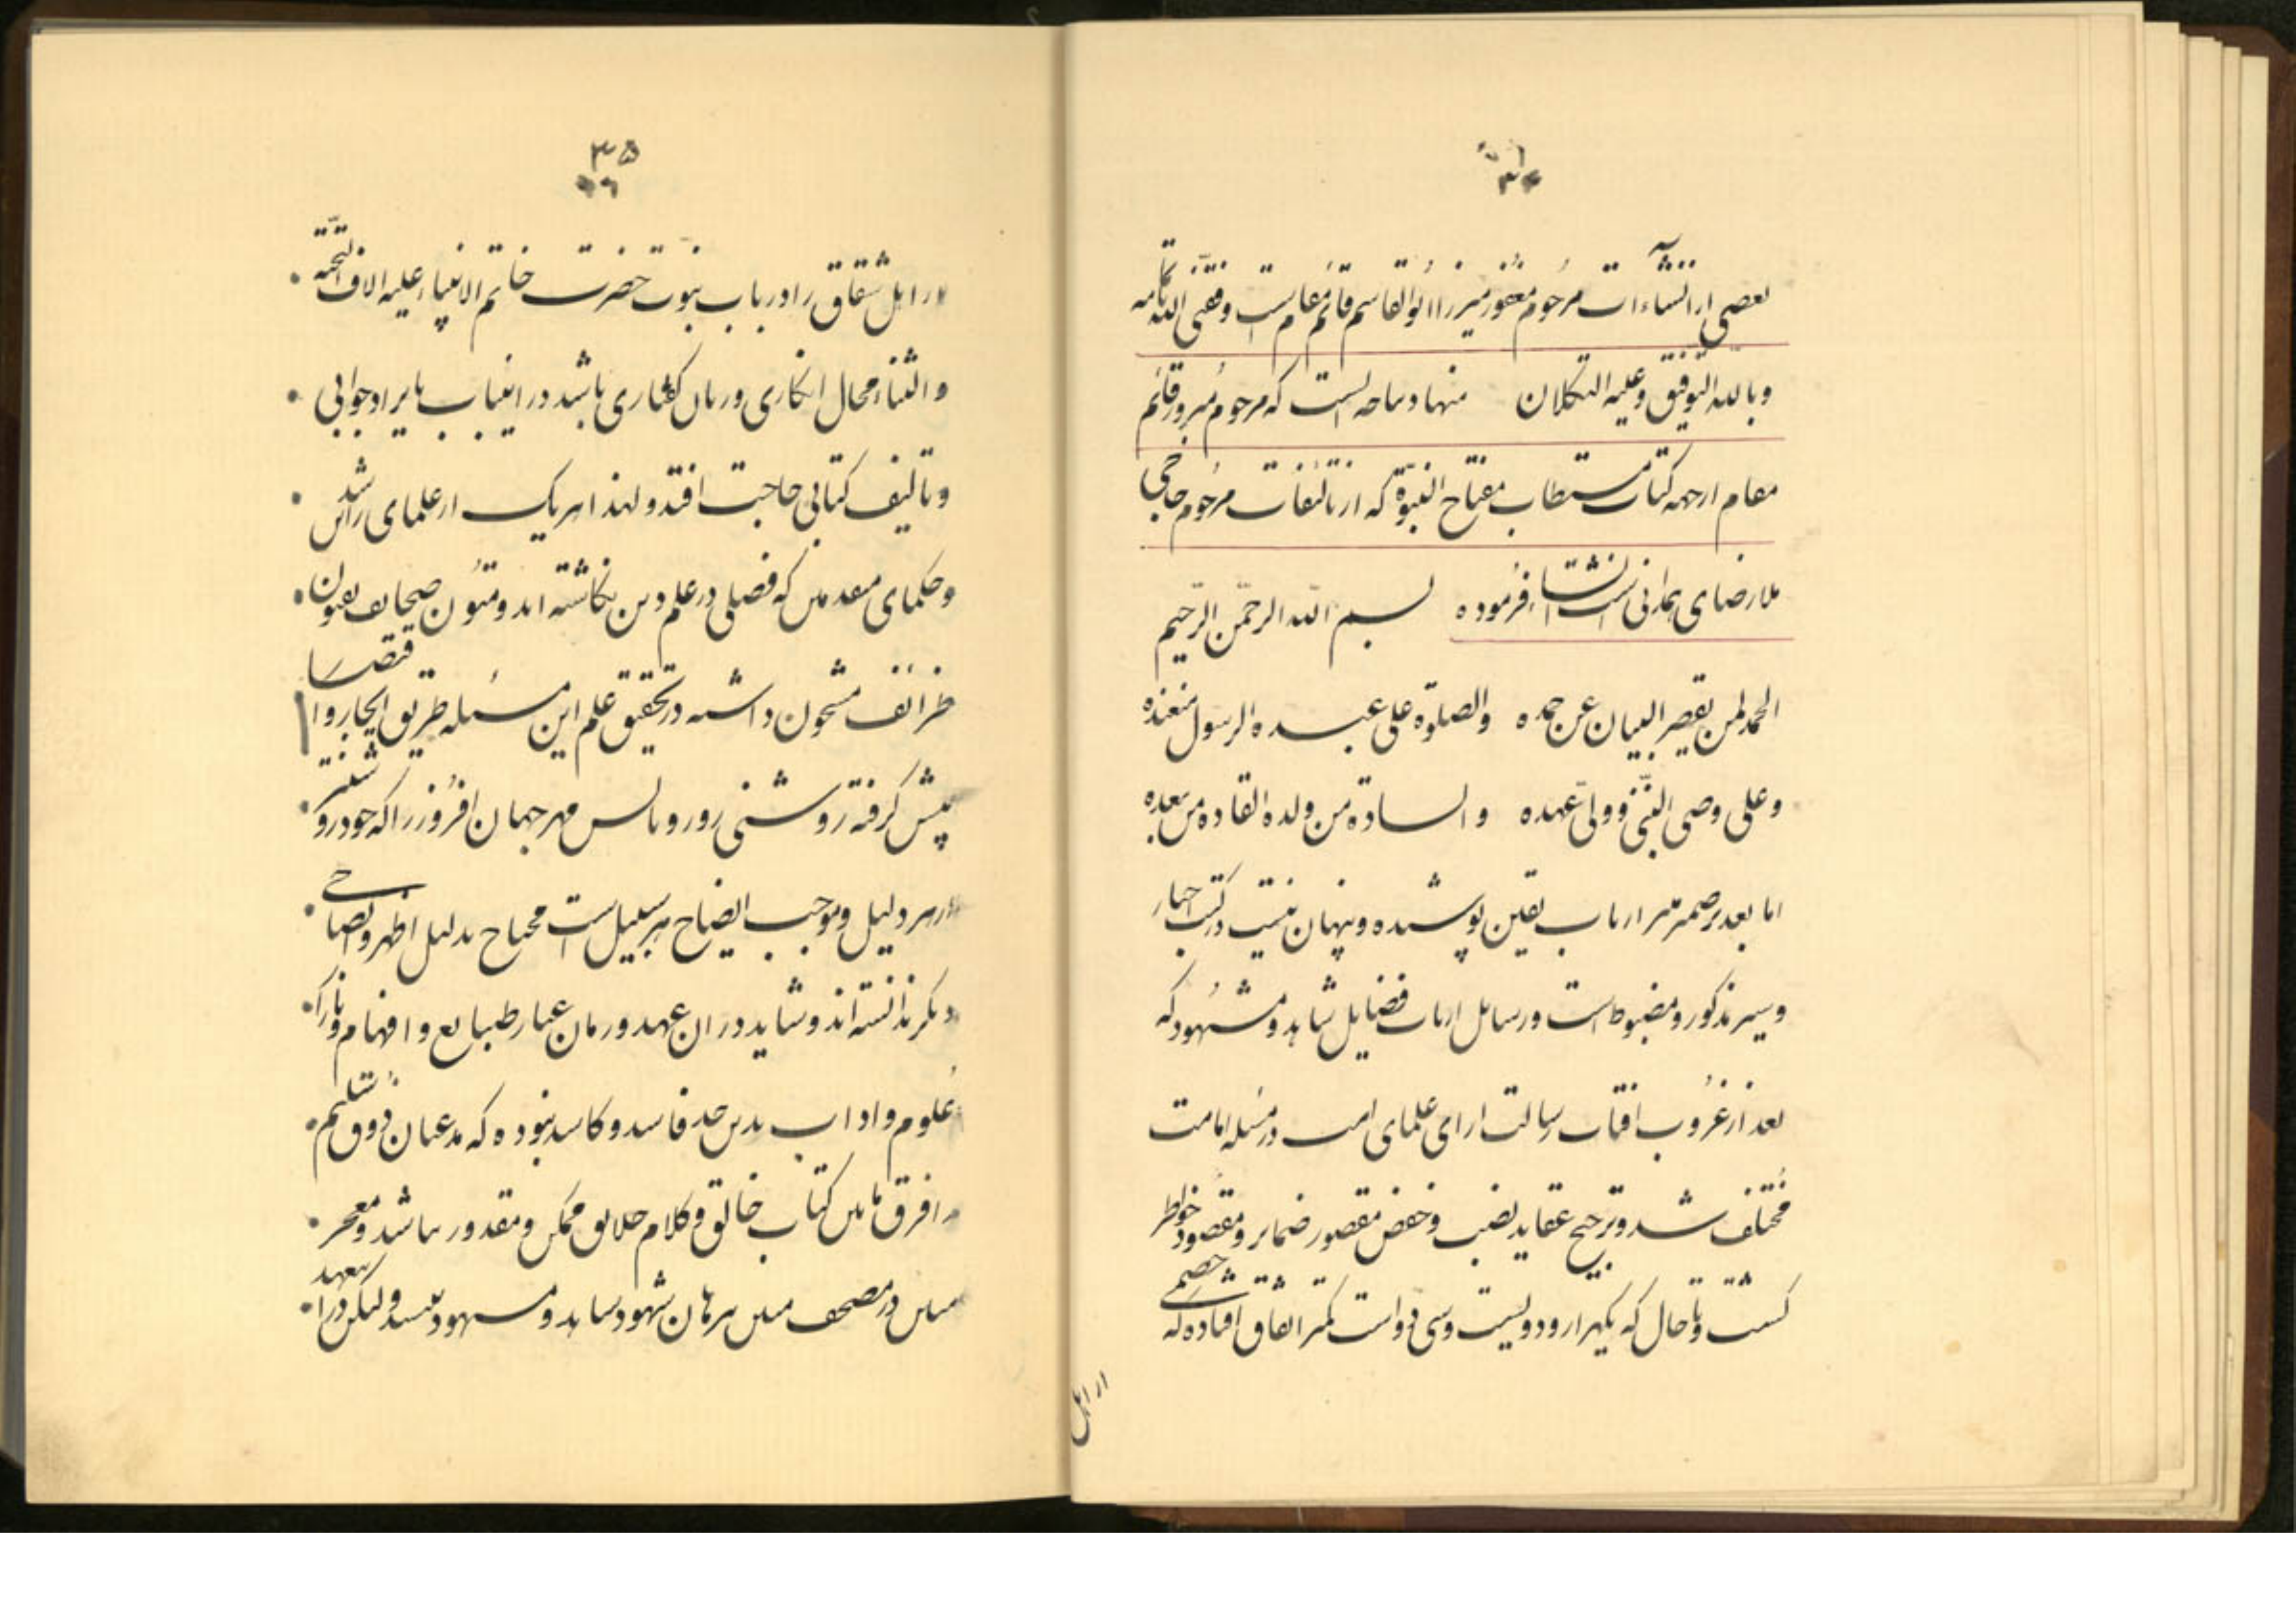 بعضی از انشاءات مرحوم مغفور میرزا ابوالقاسم قائم مقام است وفقنی الله
وبالله التوفیق وعلیه التکلان منها دیباجه ایست که مرحوم مبرور قائم
مقام از جمه کتاب مستطاب مفتاح النبوة که از تالیفات مرحوم حاجی
ملا رضای همدانی است انشا فرموده بسم الله الرحمن الرحیم
الحمد لمن یقصر البیان عن حمده والصلوة علی عبده الرسول من عنده
وعلی وصی النبی و ولی عهده والسادة من ولده القادة من بعده
اما بعد بر ضمیر ارباب یقین پوشیده و پنهان نیست در کتب اخبار
و سیر مذکور و مضبوط است و رسایل ارباب فضایل شاهد و مشهود که
بعد از غروب افتاب رسالت ارای علمای امت در مسئله امامت
مختلف شد و ترجیح عقاید بنصب و خفض مقصور ضمایر و مقصود خواطر
کشت و تا حال که یکهزار و دویست و سی و دو است کمتر اتفاق افتاده که شخصی
از اهل
۳۵
از اهل شقاق را در باب نبوت حضرت خاتم الانبیاء علیه الاف التحیة
والثناء مجال انکاری و زبان کفتاری باشد در اینباب بایراد جوابی
و تالیف کتابی حاجت افتد و لهذا هر یک از علمای راشدین
و حکمای متقدمین که فصلی در علم دین نکاشته اند و متون صحایف بفنون
ظرائف مشحون داشته در تحقیق علم این مسئله طریق ایجاز و اقتصار
پیش کرفته روشنی روز و تابش مهر جهان افروز را که خود روشنتر
از هر دلیل و موجب ایضاح هر سبیل است محتاج بدلیل اظهر و ایضاحی
دیکر ندانسته اند و شاید در ان عهد و زمان عیار طبایع و افهام و بازار
علوم و اداب بدین حد فاسد و کاسد نبوده که مدعیان ذوق سلیم
را فرق مابین کتاب خالق و کلام خلایق ممکن و مقدور نباشد و معجز
مبین در مصحف مبین برهان شهود شاهد و مشهود نیست ولیکن در این عهد